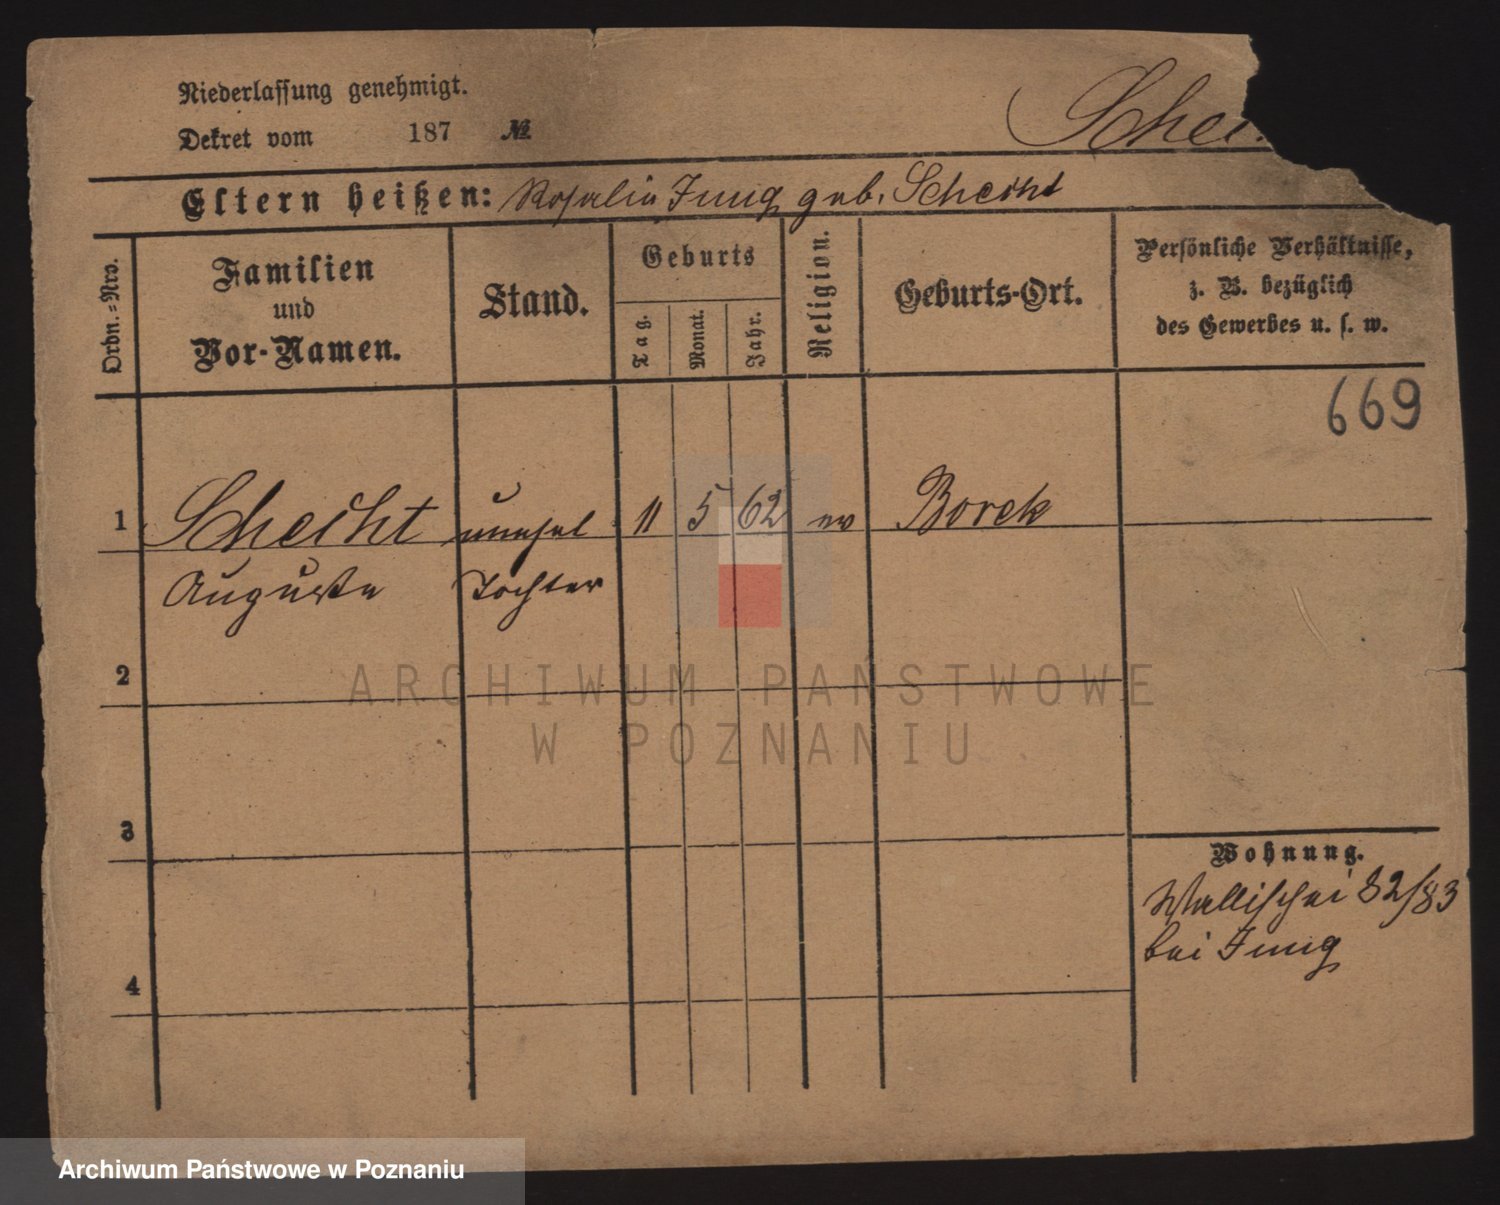 Niederlassung genehmigt.
Dekret vom 187 №
Schei
Eltern heißen: Rosalie Jung geb. Scheiht
Ordn.-Nro.
Familien
und
Vor-Namen.
Stand.
Geburts
Tag.
Monat.
Jahr.
Religion.
Geburts-Ort.
Persönliche Verhältnisse,
z. B. bezüglich
des Gewerbes u. s. w.
669
1 Scheiht unehel 11 5 62 ev Borek
Auguste Tochter
2
ARCHIWUM PAŃSTWOWE
W POZNANIU
3
Wohnung.
Wallischei 82/83
bei Jung
4
Archiwum Państwowe w Poznaniu